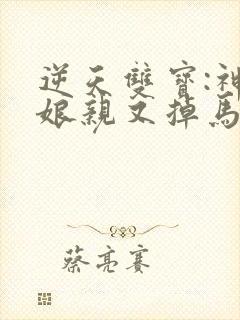 逆天雙寶:神
娘親又掉馬
蔡亮賽